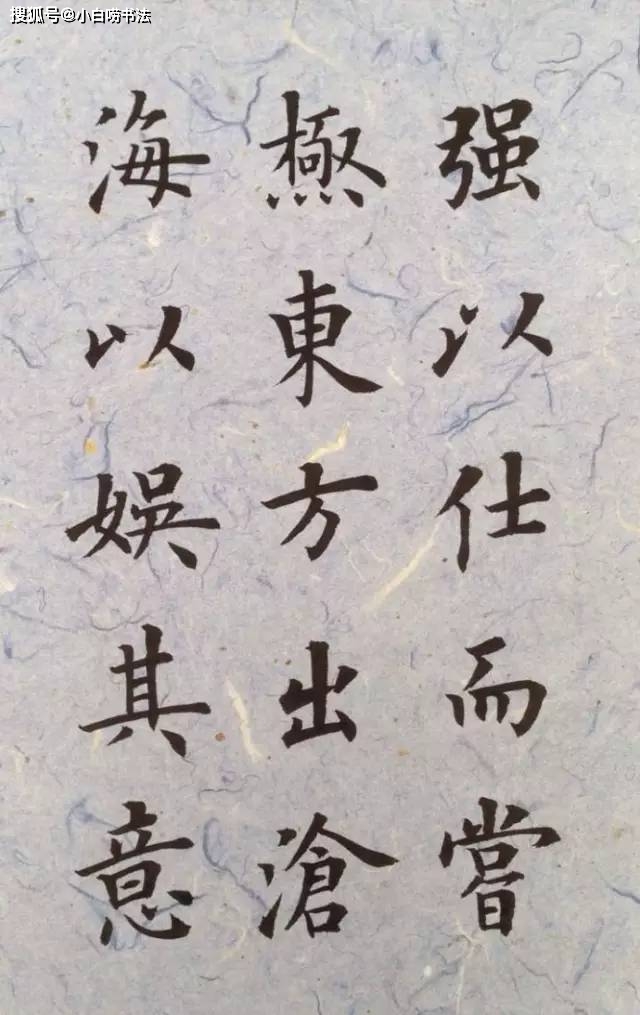 搜狐号@小白唠书法
强以仕而嘗
極東方出滄
海以娱其意